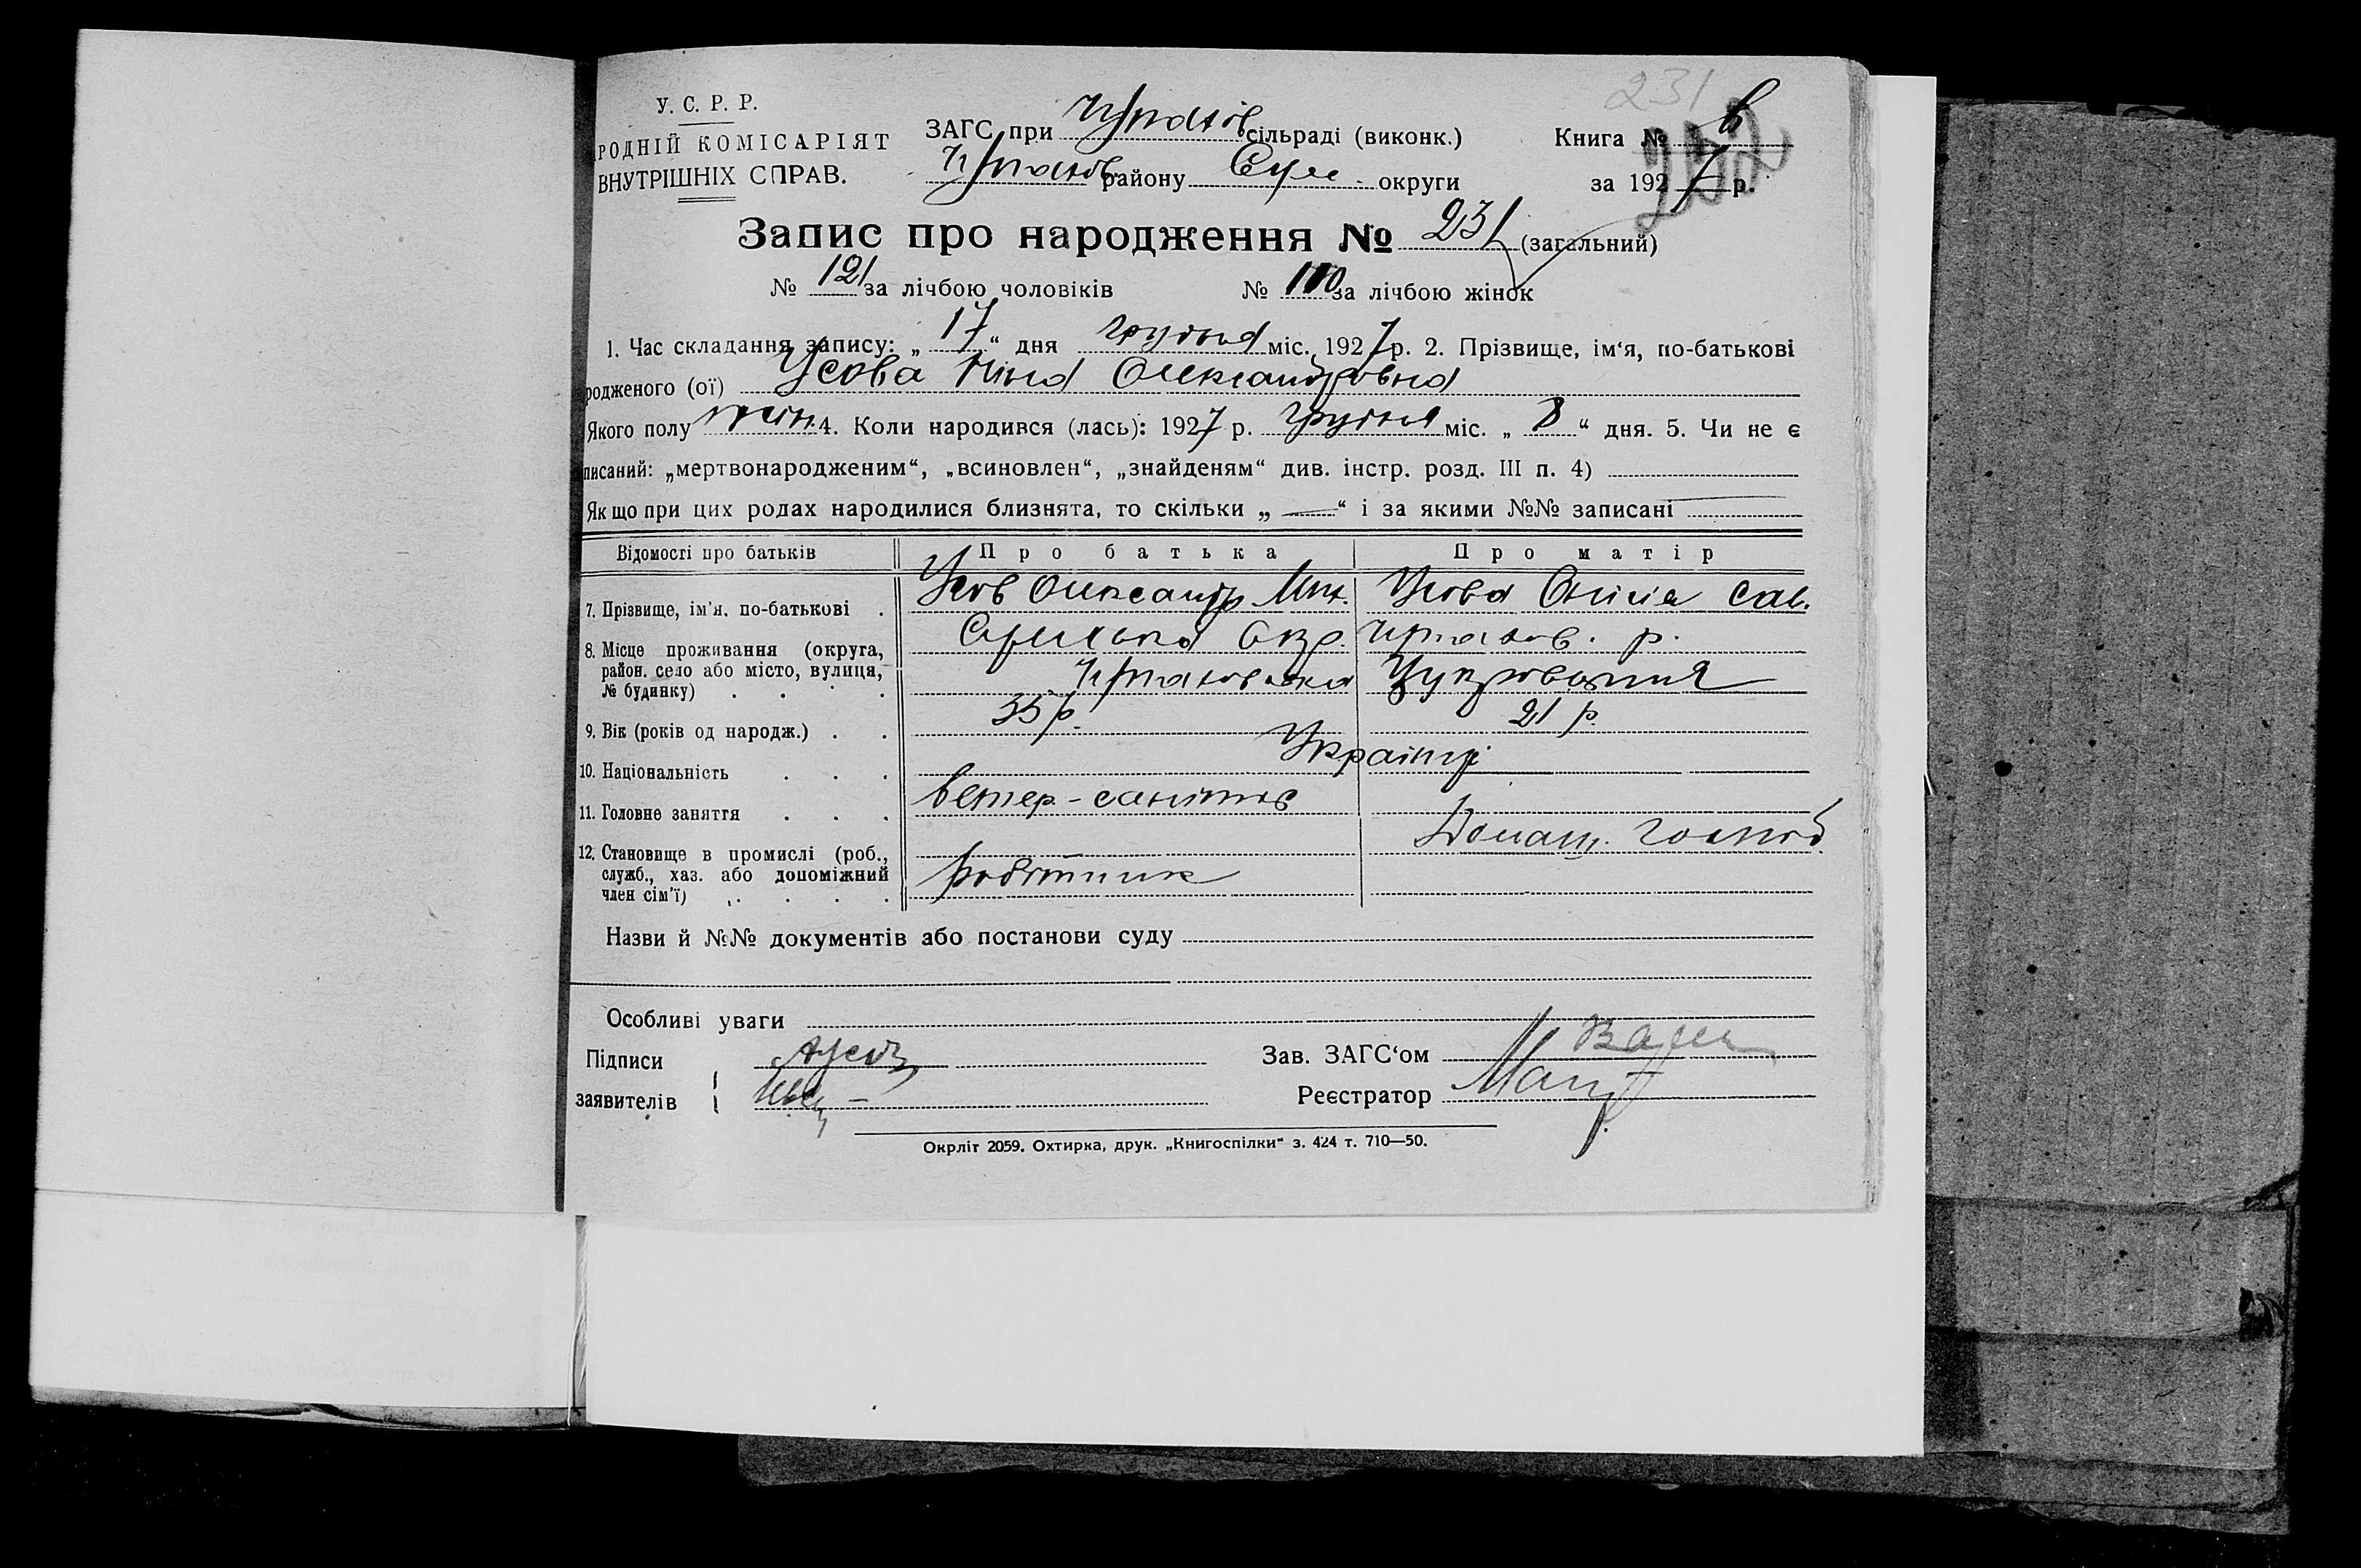 231
232
У. С. Р. Р.
РОДНІЙ КОМІСАРІЯТ
ВНУТРІШНІХ СПРАВ.
ЗАГС при сільраді (виконк.)
району округи
Книга №
за 1927 р.
Запис про народження № 231 (загальний)
№ 121 за лічбою чоловіків № 110 за лічбою жінок
1. Час складання запису: „ 17 “ дня грудня міс. 1927 р. 2. Прізвище, ім‘я, по-батькові
родженого (ої) Усова Ніна Олександровна
Якого полу жін. 4. Коли народився (лась): 1927 р. грудня міс. „ 8 “ дня. 5. Чи не є
писаний: „мертвонародженим“, „всиновлен“, „знайденям“ див. інстр. розд. III п. 4)
Якщо при цих родах народилися близнята, то скільки „ — “ і за якими №№ записані
Відомості про батьків Про батька Про матір
7. Прізвище, ім'я, по-батькові Усов Олександр Мит. Усова Анісія Сав.
8. Місце проживання (округа, Сумська Окр. р.
район, село або місто, вулиця,
№ будинку)
9. Вік (років од народж.) 35 р. 21 р.
10. Національність Українці
11. Головне заняття ветер-санітар
Домаш. господ.
12. Становище в промислі (роб.,
служб., хаз. або допоміжний робітник
член сім'ї)
Назви й №№ документів або постанови суду
Особливі уваги
Підписи Зав. ЗАГС‘ом
заявителів Реєстратор
Окрліт 2059. Охтирка, друк. „Книгоспілки“ з. 424 т. 710—50.